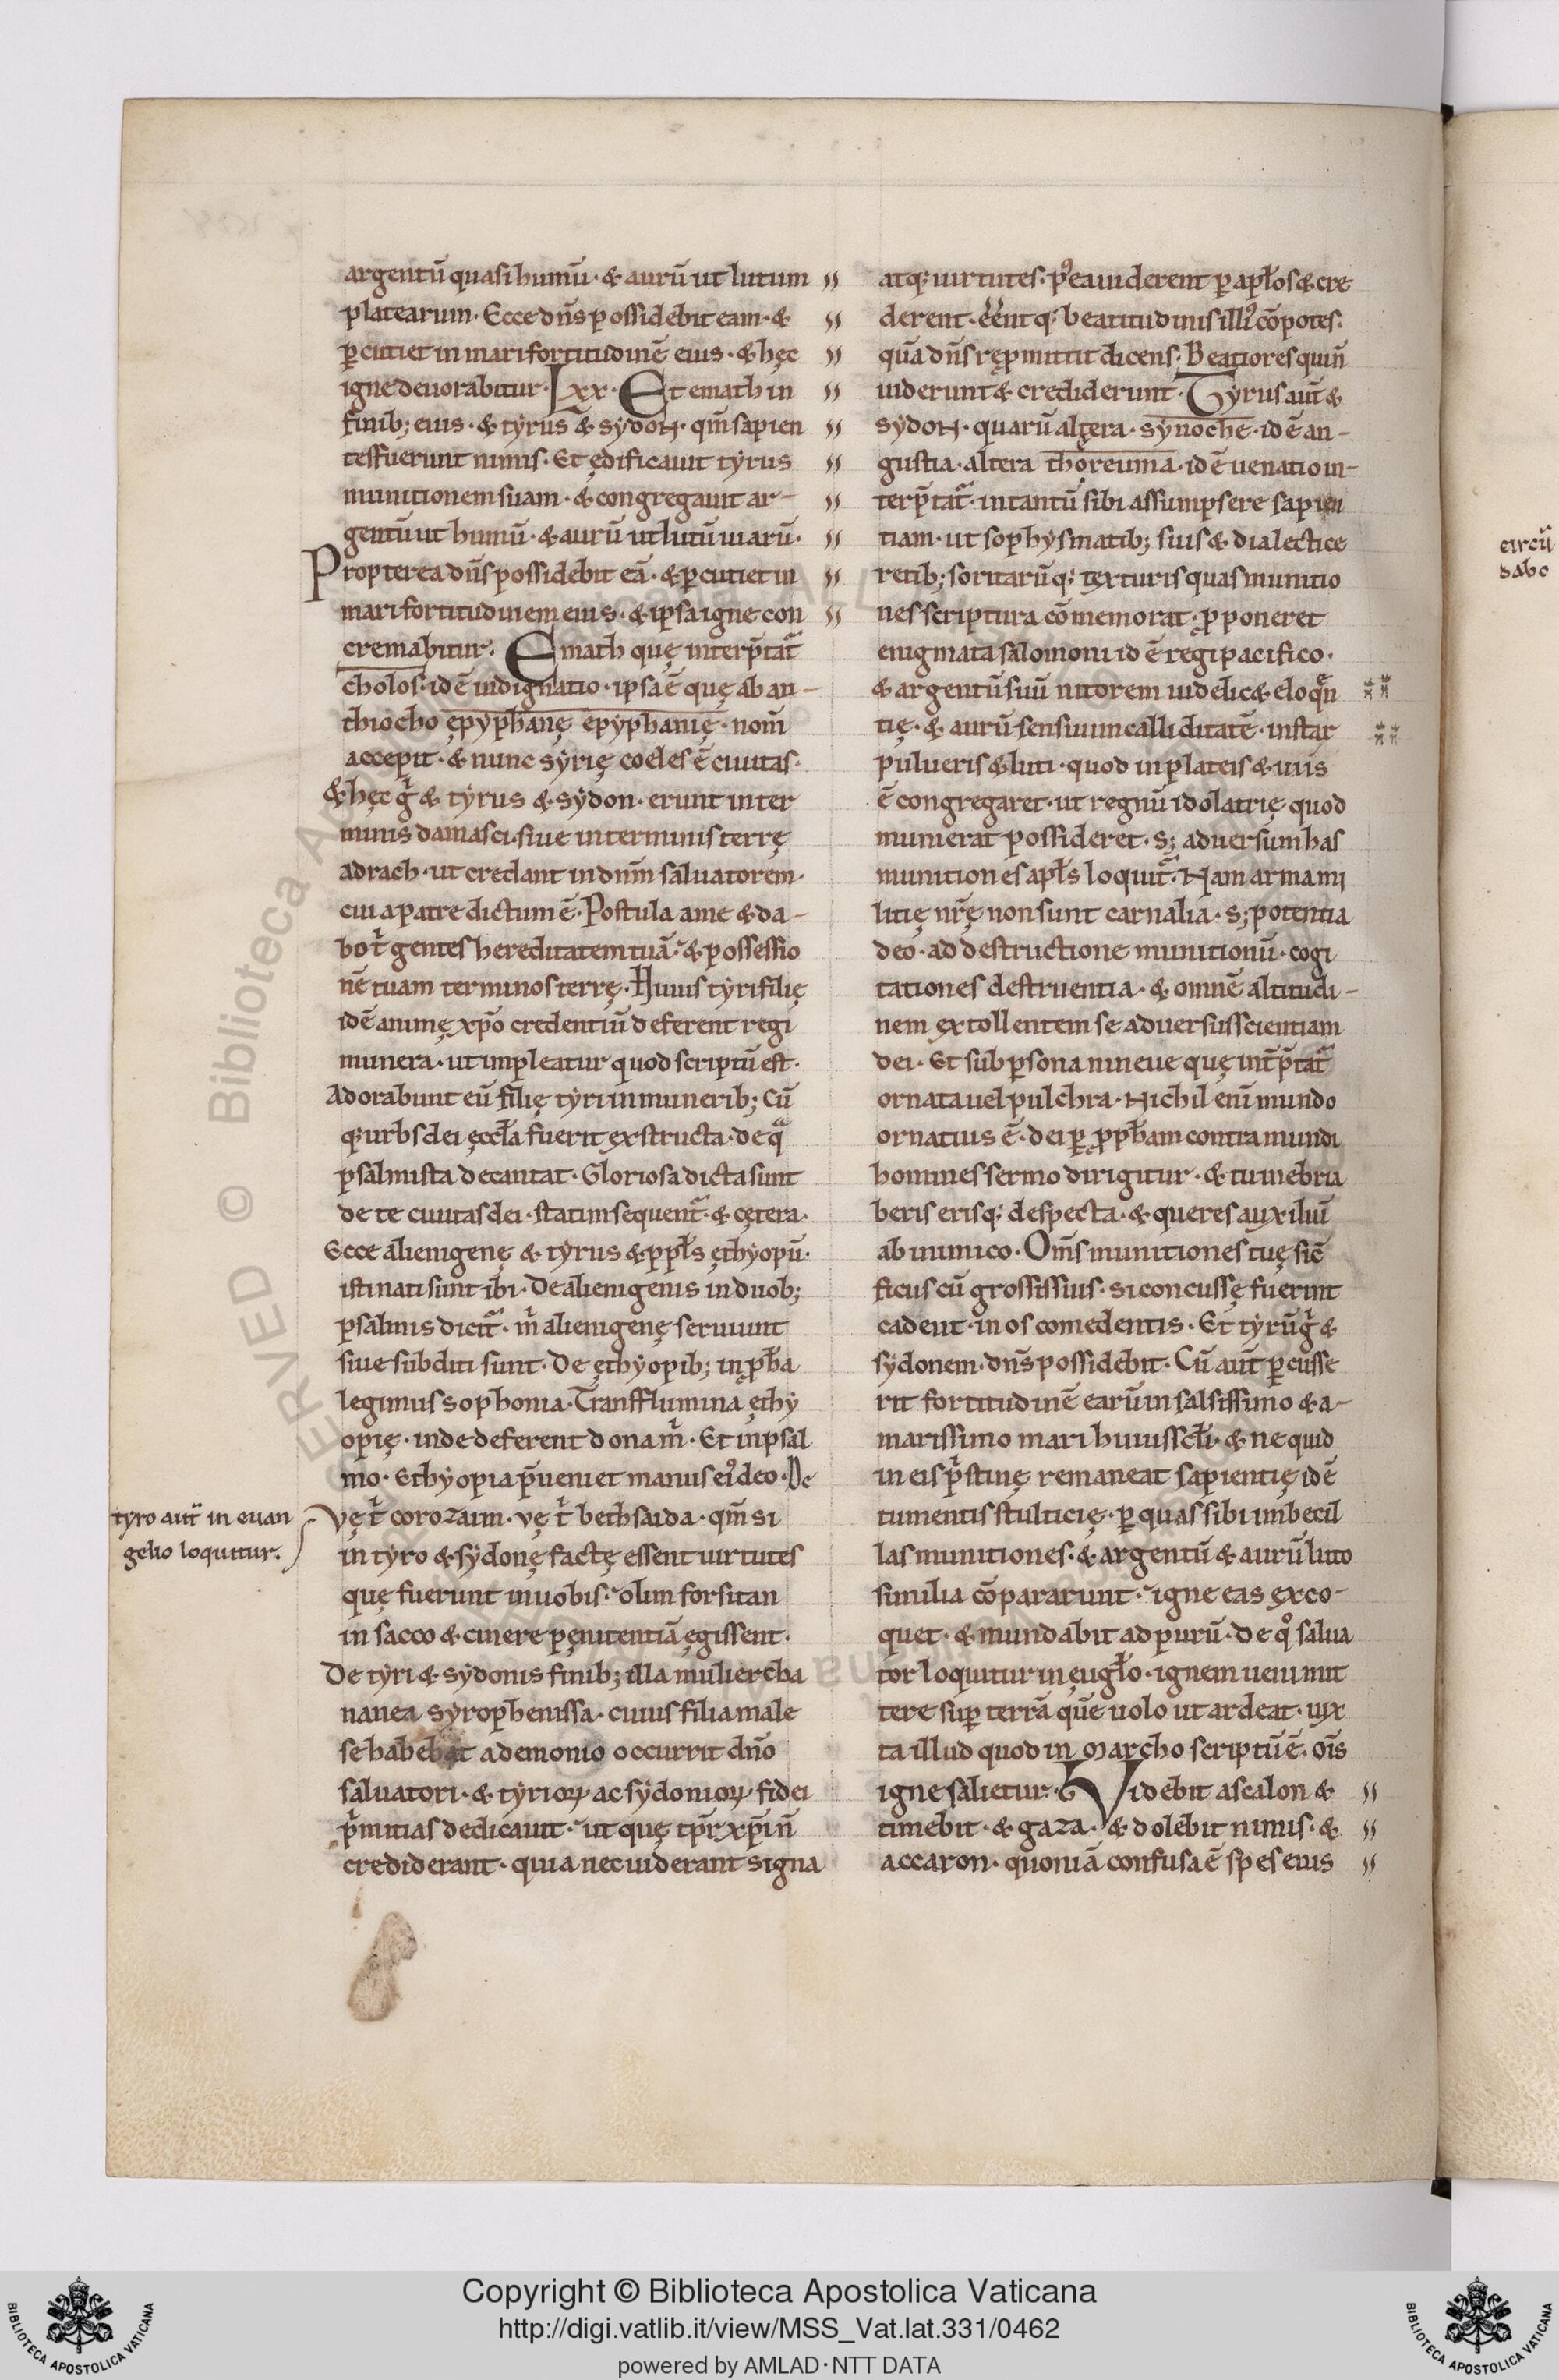 argentū quasi humū· & aurū ut lutum
platearum· Ecce dn̄s possidebit eam· &
ꝑcutiet in mari fortitudinē eius· & hęc
igne deuorabitur· Lxx· Et emath in
finib; eius· & tyrus & sydon· qm̄ sapien
tes fuerunt nimis· Et ędificauit tyrus
munitionem suam· & congregauit ar-
gentū ut humū· & aurū ut lutū uiarū·
Propterea dn̄s possidebit eā· & ꝑcutiet in
mari fortitudinem eius· & ipsa igne con
cremabitur· Emath quę interp̄tat᷑
cholos· id ē indignatio· ipsa ē quę ab an-
thiocho ępyphanę epyphanię· nom̄
accepit· & nunc syrię coeles ē ciuitas·
& hęc g̊ & tyrus & sydon· erunt in ter
minis damasci· siue in terminis terrę
adrach· ut credant in dnm̄ saluatorem·
cui a patre dictum ē· Postula a me & da-
bo t̊ gentes hereditatem tuā· & possessio
nē tuam terminos terrę· Huius tyri filię
id ē animę xp̄o credentiū deferent regi
munera· ut impleatur quod scriptū est·
Adorabunt eū filię tyri in munerib; Cū
q; urbs dei ęccl̄a fuerit exstructa· de qᵃ
psalmista decantat· Gloriosa dicta sunt
de te ciuitas dei· statim sequent᷑· & cętera·
Ecce alienigenę & tyrus & ppl̄s ęthyopū·
isti nati sunt ibi· De alienigenis in duob;
psalmis dicit᷑· m̊ alienigenę seruiunt
siue subditi sunt· De ęthyopib; in ꝓph̄a
legimus sophonia· Trans flumina ęthy
opię· inde deferent dona m̊· Et in psal
mo· Ethyopia p̄ueniet manus ei᷒ deo· De
tyro aut᷑ in euan
gelio loquitur.
vę t̊ corozaim· vę t̊ bethsaida· qm̄ si
in tyro & sydonę factę essent uirtutes
quę fuerunt in uobis· olim forsitan
in sacco & cinere pęnitentiā ęgissent·
De tyri & sydonis finib; illa mulier cha
nanea syrophenissa· cuius filia male
se habebat a demonio occurrit dn̄o
saluatori· & tyrioꝝ ac sydonioꝝ fidei
p̊mitias dedicauit· ut quę tp̄r xp̄i n̄
crediderant· quia nec uiderant signa
atq; uirtutes· p᷒ea uiderent ꝑ apl̄os & cre
derent· eēnt q; beatitudinis illi᷒ cōpotes·
quā dn̄s rępmittit dicens· Beatiores qui n̄
uiderunt & crediderunt· Tyrus aut̄ &
sydon· quarū altęra· synoche· id ē an-
gustia· altera thoreuma· id ē uenatio in-
terp̄tat᷑· in tantū sibi assumpsere sapien
tiam· ut sophysmatib; suis & dialectice
retib; soritarūq; texturis quas munitio
nes scriptura cōmemorat· ꝓponeret
enigmata salomoni id ē regi pacifico·
& argentū suū nitorem uidelic& eloqn̄
tię· & aurū sensuum calliditatē· instar
pulueris & luti· quod in plateis & uiis
ē congregaret· ut regnū idolatrię quod
munierat possideret· s; aduersum has
munitiones apl̄s loquit᷑· Nam arma mi
litię nr̄ę non sunt carnalia· s; potentia
deo· ad destructione munitionū· cogi
tationes destruentia· & omnē altitudi-
nem extollentem se aduersus scientiam
dei· Et sub ꝑsona nineue quę int̄p̄tat᷑
ornata uel pulchra· Nichil enī mundo
ornatius ē· dei ꝑ ꝓph̄am contra mundi
homines sermo dirigitur· & tu inebria
beris erisq; despecta· & queres auxiliū
ab inimico· Om̄s munitiones tuę sic̄
ficus cū grossis suis· si concussę fuerint
cadent· in os comedentis· Et tyrū g̊ &
sydonem· dn̄s possidebit· Cū aut̄ ꝑcusse
rit fortitudinē earū in salsissimo & a-
marissimo mari huius scl̄i· & ne quid
in eis p̊stinę remaneat sapientię id ē
tumentis stulticię· ꝑ quas sibi imbecil
las munitiones· & argentū & aurū luto
similia cōpararunt· igne eas exco-
quet· & mundabit ad purū· de qͦ salua
tor loquitur in ęugl̄o· ignem ueni mit
tere suꝑ terrā quē uolo ut ardeat· iux
ta illud quod in marcho scriptū ē· om̄is
igne salietur· Videbit ascalon &
timebit· & gaza· & dolebit nimis· &
accaron· quoniā confusa ē spes eius
circū
dabo
Copyright © Biblioteca Apostolica Vaticana
http://digi.vatlib.it/view/MSS_Vat.lat.331/0462
powered by AMLAD·NTT DATA
BIBLIOTECA APOSTOLICA VATICANA
BIBLIOTECA APOSTOLICA VATICANA